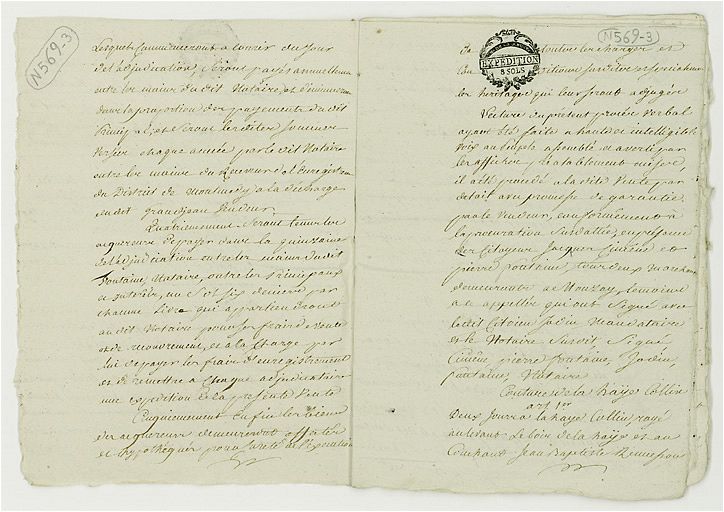 N569-3
Lesquels commenceront a courir du jour
de l'adjudication, seront payés annuellement
entre les mains du dit Notaire, et diminueront
dans la proportion des payements du dit
verser chaque année par le dit Notaire
entre les mains du Receveur de l'enregistrement
du District de a la décharge
du dit grandjean Vendeur
Quatriemement Seront tenus les
acquereurs de payer dans la quinzaine
de l'adjudication entre les mains du dit
fontaine, Notaire, outre les principaux
et interêts, un Sol six deniers par
chaque livre qui appartiendront
au dit Notaire pour ses frais de vente
et de recouvrement, et a la charge par
lui de payer les frais d'enregistrement
et de remettre a chaque adjudicataire
une expedition de la présente Vente
Cinquiemement Enfin les biens
des acquereurs demeureront affectés
et hypothéqués pour sureté de l'Execution
N569-3
EXPEDITION
8 SOLS
de toutes les charges et
les heritages qui leur seront adjugés
Lecture du présent procès verbal
ayant été faite a haute et intelligible
voix au peuple assemblé et averti par
les affiches préalablement
il a été procédé a la dite Vente par
détail avec promesse de garantie
par le Vendeur, conformément à
la procuration Susdattée, en présence
des Citoyens Jacques et
pierre fontaine, tous deux
demeurants a Mouzay, temoins
a ce appellés qui ont Signé avec
le dit Citoyen Jodin Mandataire
et le Notaire Suivit Signé
pierre fontaine, Jodin,
fontaine Notaire
Couture de la haye Collin
art 1er
Deux Jours a la haye Collin
au levant le bois de la haye et au
Couchant Jean Baptiste